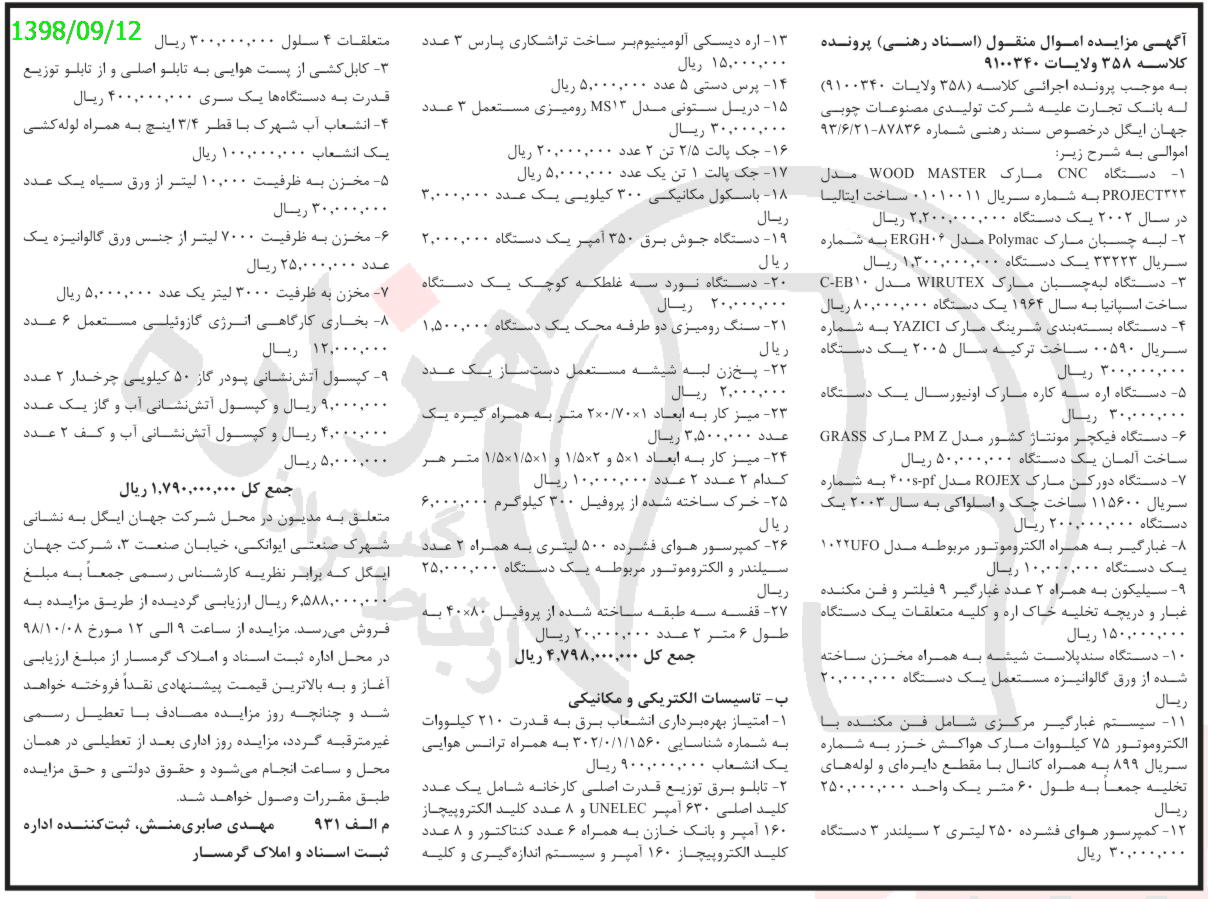 1398/09/12
آگهـی مزایـده امـوال منقـول (اسـناد رهنـی) پرونـده
کلاسـه ۳۵۸ ولایـات ۹۱۰۰۳۴۰
بـه موجـب پرونـده اجرائـی کلاسـه (۳۵۸ ولایـات ۹۱۰۰۳۴۰)
لـه بانـک تجارت علیـه شـرکت تولیـدی مصنوعـات چوبـی
جهان ایگل درخصوص سند رهنی شماره ۸۷۸۳۶-۹۳/۶/۲۱
اموالی به شرح زیر:
۱- دستگاه CNC مارک WOOD MASTER مدل
PROJECT۳۲۳ به شماره سریال ۰۱۰۱۰۰۱۱ ساخت ایتالیا
در سال ۲۰۰۲ یک دستگاه ۲,۲۰۰,۰۰۰,۰۰۰ ریال
۲- لبه چسبان مارک Polymac مدل ERGH۰۶ به شماره
سریال ۳۳۲۲۳ یک دستگاه ۱,۳۰۰,۰۰۰,۰۰۰ ریال
۳- دستگاه لبه‌چسبان مارک WIRUTEX مدل C-EB۱۰
ساخت اسپانیا به سال ۱۹۶۴ یک دستگاه ۸۰,۰۰۰,۰۰۰ ریال
۴- دستگاه بسته‌بندی شرینگ مارک YAZICI به شماره
سریال ۰۰۵۹۰ ساخت ترکیه سال ۲۰۰۵ یک دستگاه
۳۰۰,۰۰۰,۰۰۰ ریال
۵- دستگاه اره سه کاره مارک اونیورسال یک دستگاه
۳۰,۰۰۰,۰۰۰ ریال
۶- دستگاه فیکچر مونتاژ کشور مدل PM Z مارک GRASS
ساخت آلمان یک دستگاه ۵۰,۰۰۰,۰۰۰ ریال
۷- دستگاه دورکن مارک ROJEX مدل ۴۰۰s-pf به شماره
سریال ۱۱۵۶۰۰ ساخت چک و اسلواکی به سال ۲۰۰۳ یک
دستگاه ۲۰۰,۰۰۰,۰۰۰ ریال
۸- غبارگیر به همراه الکتروموتور مربوطه مدل ۱۰۲۲UFO
یک دستگاه ۱۰,۰۰۰,۰۰۰ ریال
۹- سیلیکون به همراه ۲ عدد غبارگیر ۹ فیلتر و فن مکنده
غبار و دریچه تخلیه خاک اره و کلیه متعلقات یک دستگاه
۱۵۰,۰۰۰,۰۰۰ ریال
۱۰- دستگاه سندپلاست شیشه به همراه مخزن ساخته
شده از ورق گالوانیزه مستعمل یک دستگاه ۲۰,۰۰۰,۰۰۰
ریال
۱۱- سیستم غبارگیر مرکزی شامل فن مکنده با
الکتروموتور ۷۵ کیلووات مارک هواکش خزر به شماره
سریال ۸۹۹ به همراه کانال با مقطع دایره‌ای و لوله‌های
تخلیه جمعاً به طول ۶۰ متر یک واحد ۲۵۰,۰۰۰,۰۰۰
ریال
۱۲- کمپرسور هوای فشرده ۲۵۰ لیتری ۲ سیلندر ۳ دستگاه
۳۰,۰۰۰,۰۰۰ ریال
۱۳- اره دیسکی آلومینیوم‌بر ساخت تراشکاری پارس ۳ عدد
۱۵,۰۰۰,۰۰۰ ریال
۱۴- پرس دستی ۵ عدد ۵,۰۰۰,۰۰۰ ریال
۱۵- دریل ستونی مدل MS۱۳ رومیزی مستعمل ۳ عدد
۳۰,۰۰۰,۰۰۰ ریال
۱۶- جک پالت ۲/۵ تن ۲ عدد ۲۰,۰۰۰,۰۰۰ ریال
۱۷- جک پالت ۱ تن یک عدد ۵,۰۰۰,۰۰۰ ریال
۱۸- باسکول مکانیکی ۳۰۰ کیلویی یک عدد ۳,۰۰۰,۰۰۰
ریال
۱۹- دستگاه جوش برق ۳۵۰ آمپر یک دستگاه ۲,۰۰۰,۰۰۰
ریال
۲۰- دستگاه نورد سه غلطکه کوچک یک دستگاه
۲۰,۰۰۰,۰۰۰ ریال
۲۱- سنگ رومیزی دو طرفه محک یک دستگاه ۱,۵۰۰,۰۰۰
ریال
۲۲- پخ‌زن لبه شیشه مستعمل دست‌ساز یک عدد
۲,۰۰۰,۰۰۰ ریال
۲۳- میز کار به ابعاد ۱×۲×۰/۷۰ متر به همراه گیره یک
عدد ۳,۵۰۰,۰۰۰ ریال
۲۴- میز کار به ابعاد ۱×۵ و ۲×۱/۵ و ۱×۱/۵×۱/۵ متر هر
کدام ۲ عدد ۲ عدد ۱۰,۰۰۰,۰۰۰ ریال
۲۵- خرک ساخته شده از پروفیل ۳۰۰ کیلوگرم ۶,۰۰۰,۰۰۰
ریال
۲۶- کمپرسور هوای فشرده ۵۰۰ لیتری به همراه ۲ عدد
سیلندر و الکتروموتور مربوطه یک دستگاه ۲۵,۰۰۰,۰۰۰
ریال
۲۷- قفسه سه طبقه ساخته شده از پروفیل ۸۰×۴۰ به
طول ۶ متر ۲ عدد ۲۰,۰۰۰,۰۰۰ ریال
جمع کل ۴,۷۹۸,۰۰۰,۰۰۰ ریال
ب- تاسیسات الکتریکی و مکانیکی
۱- امتیاز بهره‌برداری انشعاب برق به قدرت ۲۱۰ کیلووات
به شماره شناسایی ۳۰۲/۰/۱/۱۵۶۰ به همراه ترانس هوایی
یک انشعاب ۹۰۰,۰۰۰,۰۰۰ ریال
۲- تابلو برق توزیع قدرت اصلی کارخانه شامل یک عدد
کلید اصلی ۶۳۰ آمپر UNELEC و ۸ عدد کلید الکتروپیچاز
۱۶۰ آمپر و بانک خازن به همراه ۶ عدد کنتاکتور و ۸ عدد
کلید الکتروپیچاز ۱۶۰ آمپر و سیستم اندازه‌گیری و کلیه
متعلقات ۴ سلول ۳۰۰,۰۰۰,۰۰۰ ریال
۳- کابل‌کشی از پست هوایی به تابلو اصلی و از تابلو توزیع
قدرت به دستگاه‌ها یک سری ۴۰۰,۰۰۰,۰۰۰ ریال
۴- انشعاب آب شهرک با قطر ۳/۴ اینچ به همراه لوله‌کشی
یک انشعاب ۱۰۰,۰۰۰,۰۰۰ ریال
۵- مخزن به ظرفیت ۱۰,۰۰۰ لیتر از ورق سیاه یک عدد
۳۰,۰۰۰,۰۰۰ ریال
۶- مخزن به ظرفیت ۷۰۰۰ لیتر از جنس ورق گالوانیزه یک
عدد ۲۵,۰۰۰,۰۰۰ ریال
۷- مخزن به ظرفیت ۳۰۰۰ لیتر یک عدد ۵,۰۰۰,۰۰۰ ریال
۸- بخاری کارگاهی انرژی گازوئیلی مستعمل ۶ عدد
۱۲,۰۰۰,۰۰۰ ریال
۹- کپسول آتش‌نشانی پودر گاز ۵۰ کیلویی چرخدار ۲ عدد
۹,۰۰۰,۰۰۰ ریال و کپسول آتش‌نشانی آب و گاز یک عدد
۴,۰۰۰,۰۰۰ ریال و کپسول آتش‌نشانی آب و کف ۲ عدد
۵,۰۰۰,۰۰۰ ریال
جمع کل ۱,۷۹۰,۰۰۰,۰۰۰ ریال
متعلق به مدیون در محل شرکت جهان ایگل به نشانی
شهرک صنعتی ایوانکی، خیابان صنعت ۳، شرکت جهان
ایگل که برابر نظریه کارشناس رسمی جمعاً به مبلغ
۶,۵۸۸,۰۰۰,۰۰۰ ریال ارزیابی گردیده از طریق مزایده به
فروش می‌رسد. مزایده از ساعت ۹ الی ۱۲ مورخ ۹۸/۱۰/۰۸
در محل اداره ثبت اسناد و املاک گرمسار از مبلغ ارزیابی
آغاز و به بالاترین قیمت پیشنهادی نقداً فروخته خواهد
شد و چنانچه روز مزایده مصادف با تعطیل رسمی
غیرمترقبه گردد، مزایده روز اداری بعد از تعطیلی در همان
محل و ساعت انجام می‌شود و حقوق دولتی و حق مزایده
طبق مقررات وصول خواهد شد.
م الف ۹۳۱ مهدی صابری‌منش، ثبت‌کننده اداره
ثبت اسناد و املاک گرمسار